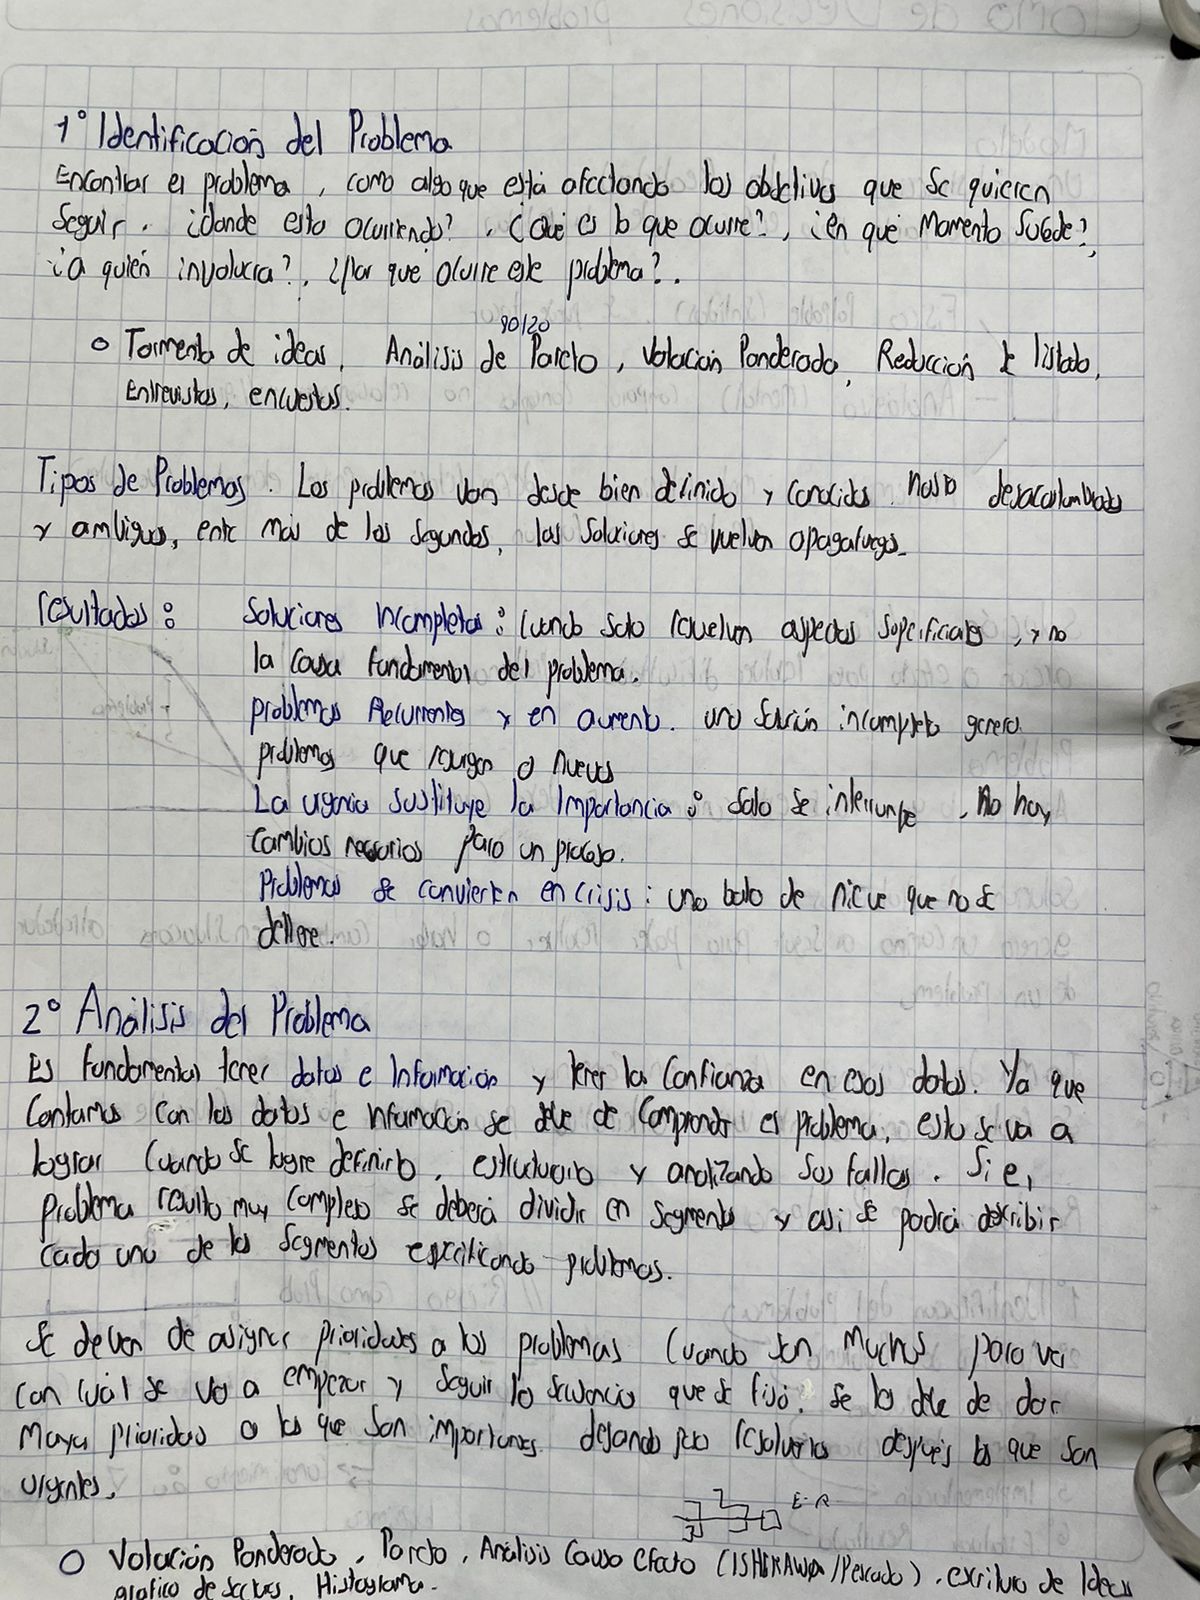 1° Identificación del Problema
Encontrar el problema, como algo que está afectando los objetivos que se quieren
seguir. ¿donde esta ocurriendo?. ¿Qué es lo que ocurre?, ¿en que Momento Sucede?,
¿a quién involucra?, ¿por que ocurre este problema?.
90/20
○ Tormenta de ideas, Análisis de Pareto, Votación Ponderada, Reducción de listado,
Entrevistas, encuestas.
Tipos de Problemas. Los problemas van desde bien definido y conocidos. hasta desacostumbrados
y ambiguos, entr mas de los segundos, las Soluciones se vuelven apagafuegos.
resultados: Soluciones Incompletas: Cuando solo resuelven aspectos superficiales, y no
la causa fundamental del problema.
problemas Recurrentes y en aumento. una solución incompleta genera
problemas que resurgen o nuevos
La urgencia sustituye la Importancia: solo se interrumpe, No hay
cambios necesarios para un proceso.
Problemas se convierten en crisis: una bola de nieve que no se
detiene.
2° Análisis del Problema
Es fundamental tener datos e Información y tener la Confianza en esos datos. Ya que
Contamos con los datos e información se debe de Comprender el problema, esto se va a
lograr Cuando se logre definirlo, estructurarlo y analizando sus fallas. Si el
Problema resulta muy complejo se deberá dividir en segmentos y asi se podrá describir
cada uno de los segmentos especificando problemas.
Se deven de asignar prioridades a los problemas Cuando son Muchos para ver
con cuál se va a empezar y seguir la secuencia que se fijó. se les debe de dar
Mayor prioridad a los que son importantes dejando para resolverlos después los que son
urgentes.
E-R
○ Votación Ponderada, Pareto, Análisis Causa efecto (ISHIKAWA/Pescado), escritura de Ideas
grafico de sectores, Histograma.